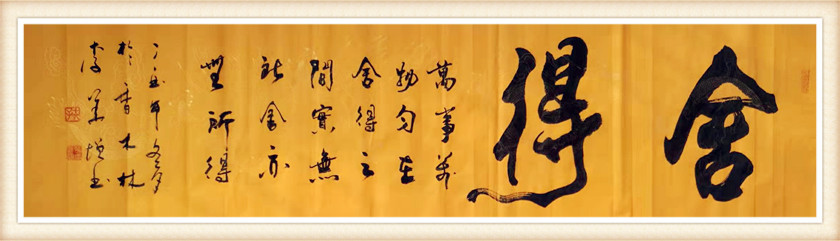 舍得
萬事萬
物匀在
舍得之
間實無
所舍亦
無所得
丁酉年冬月
於香木林
李
书